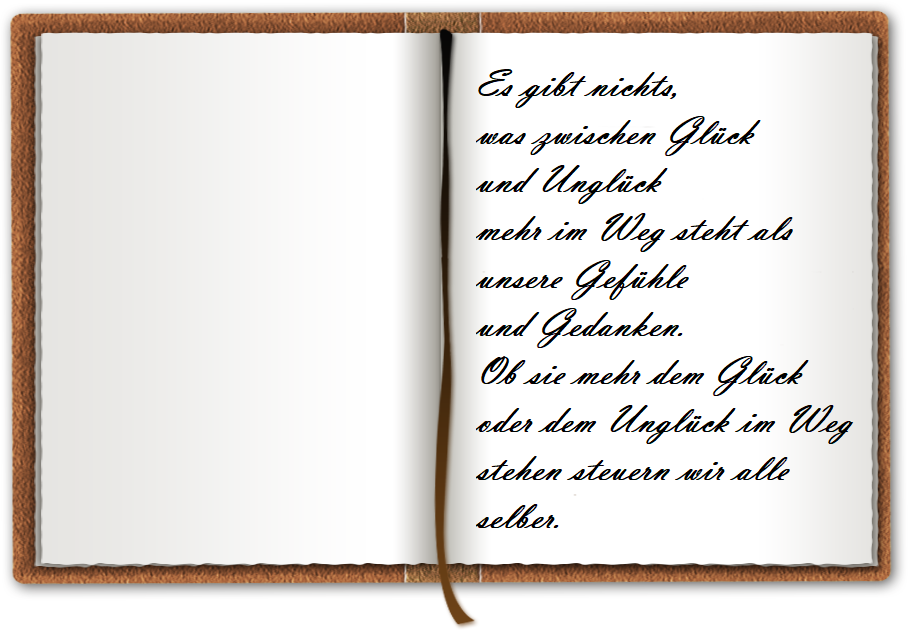 Es gibt nichts,
was zwischen Glück
und Unglück
mehr im Weg steht als
unsere Gefühle
und Gedanken.
Ob sie mehr dem Glück
oder dem Unglück im Weg
stehen steuern wir alle
selber.